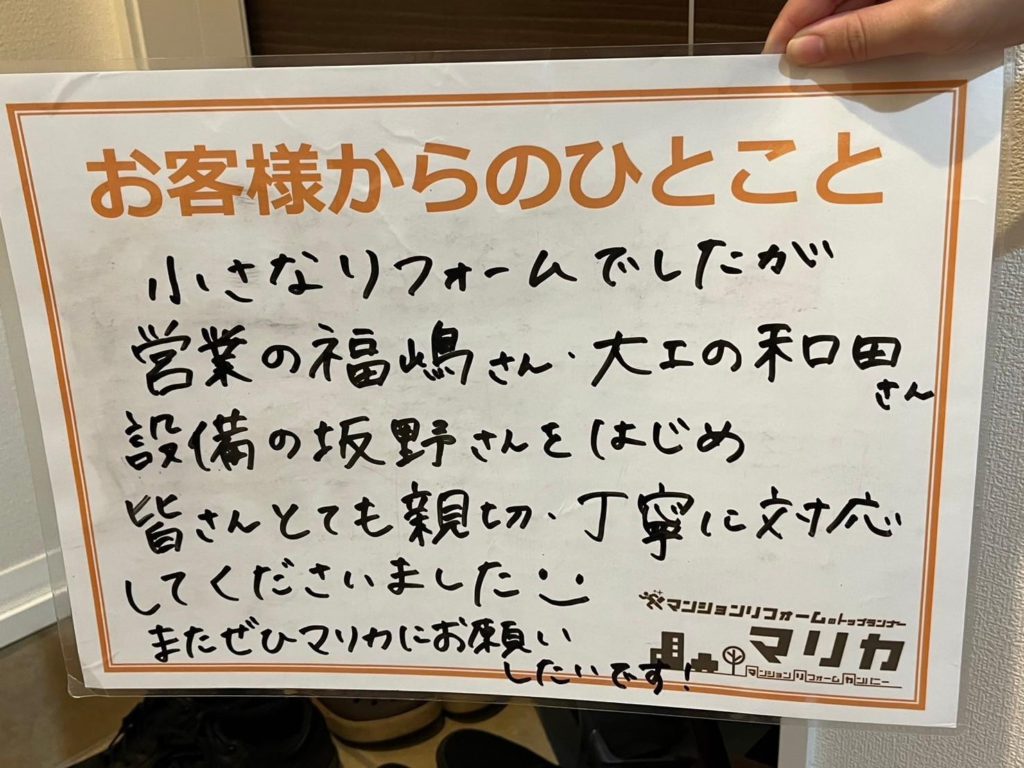 お客様からのひとこと
小さなリフォームでしたが
営業の福嶋さん・大工の和田さん
設備の坂野さんをはじめ
皆さんとても親切・丁寧に対応
してくださいました
またぜひマリカにお願い
したいです!
マンションリフォームのトップランナー
マリカ
マンションリフォームカンパニー